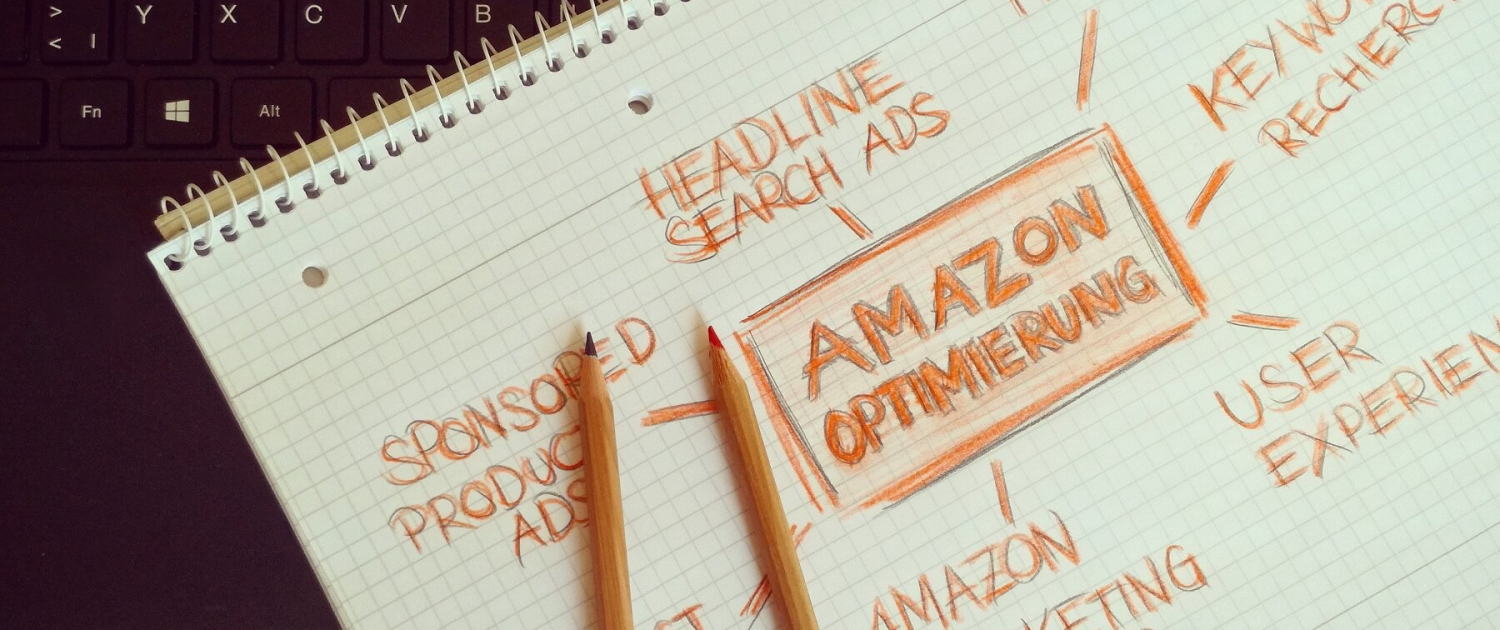 > Y X C V B
< |
Fn Alt
HEADLINE
SEARCH ADS
KEYWO
RECHERC
AMAZON
OPTIMIERUNG
SPONSORED
PRODUC
ADS
USER
EXPERIEN
AMAZON
KETING